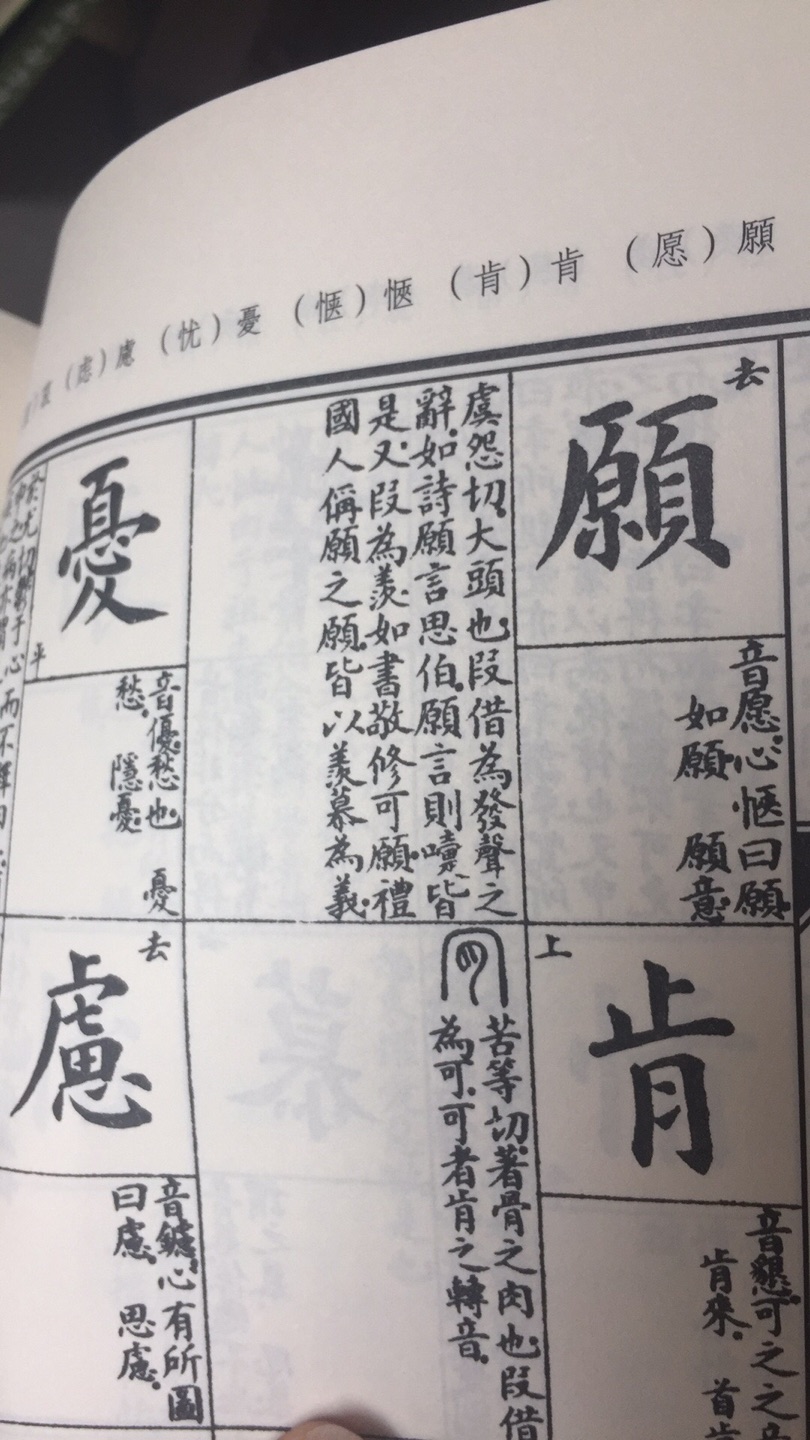 願（愿）肯（肯）愜（惬）憂（忧）慮（虑）
去
願
音愿。心愜曰願。
如願　願意。
虞怨切。大頭也。叚借為發聲之
辭。如詩願言思伯。願言則嚏。皆
是。又叚為羨。如書敬修可願。禮
國人偁願之願。皆以羨慕為義。
憂
平
音優。愁也　憂
愁。　隱憂。
上
肯
音懇。可之之
肯來。　首
苦等切。著骨之肉也。叚借
為可。可者肯之轉音。
去
慮
音鑢。心有所圖
曰慮。　思慮。